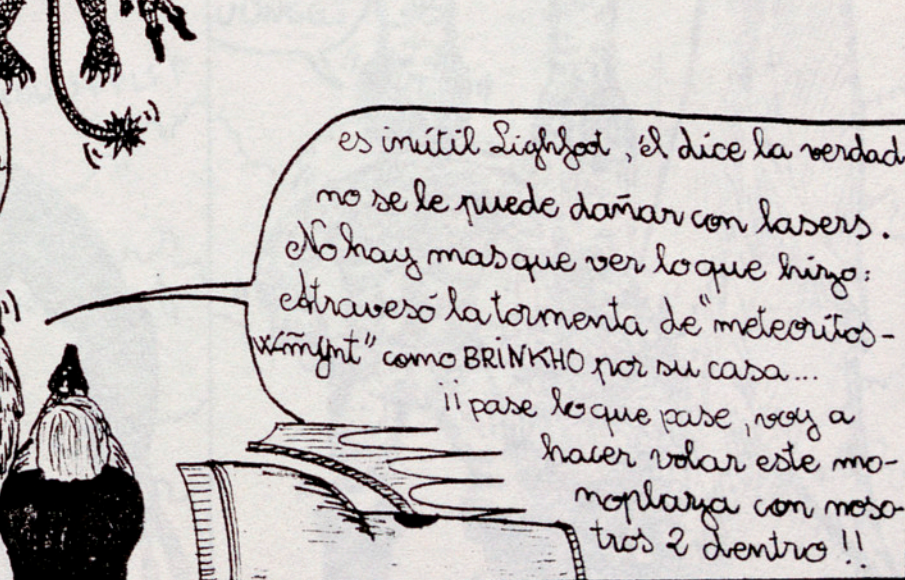 es inútil Lighfoot, él dice la verdad
no se le puede dañar con lasers.
No hay mas que ver lo que hizo:
Atravesó la tormenta de "meteoritos-
como BRINKHO por su casa...
¡¡pase lo que pase, voy a
hacer volar este mo-
noplaza con noso-
tros 2 dentro!!